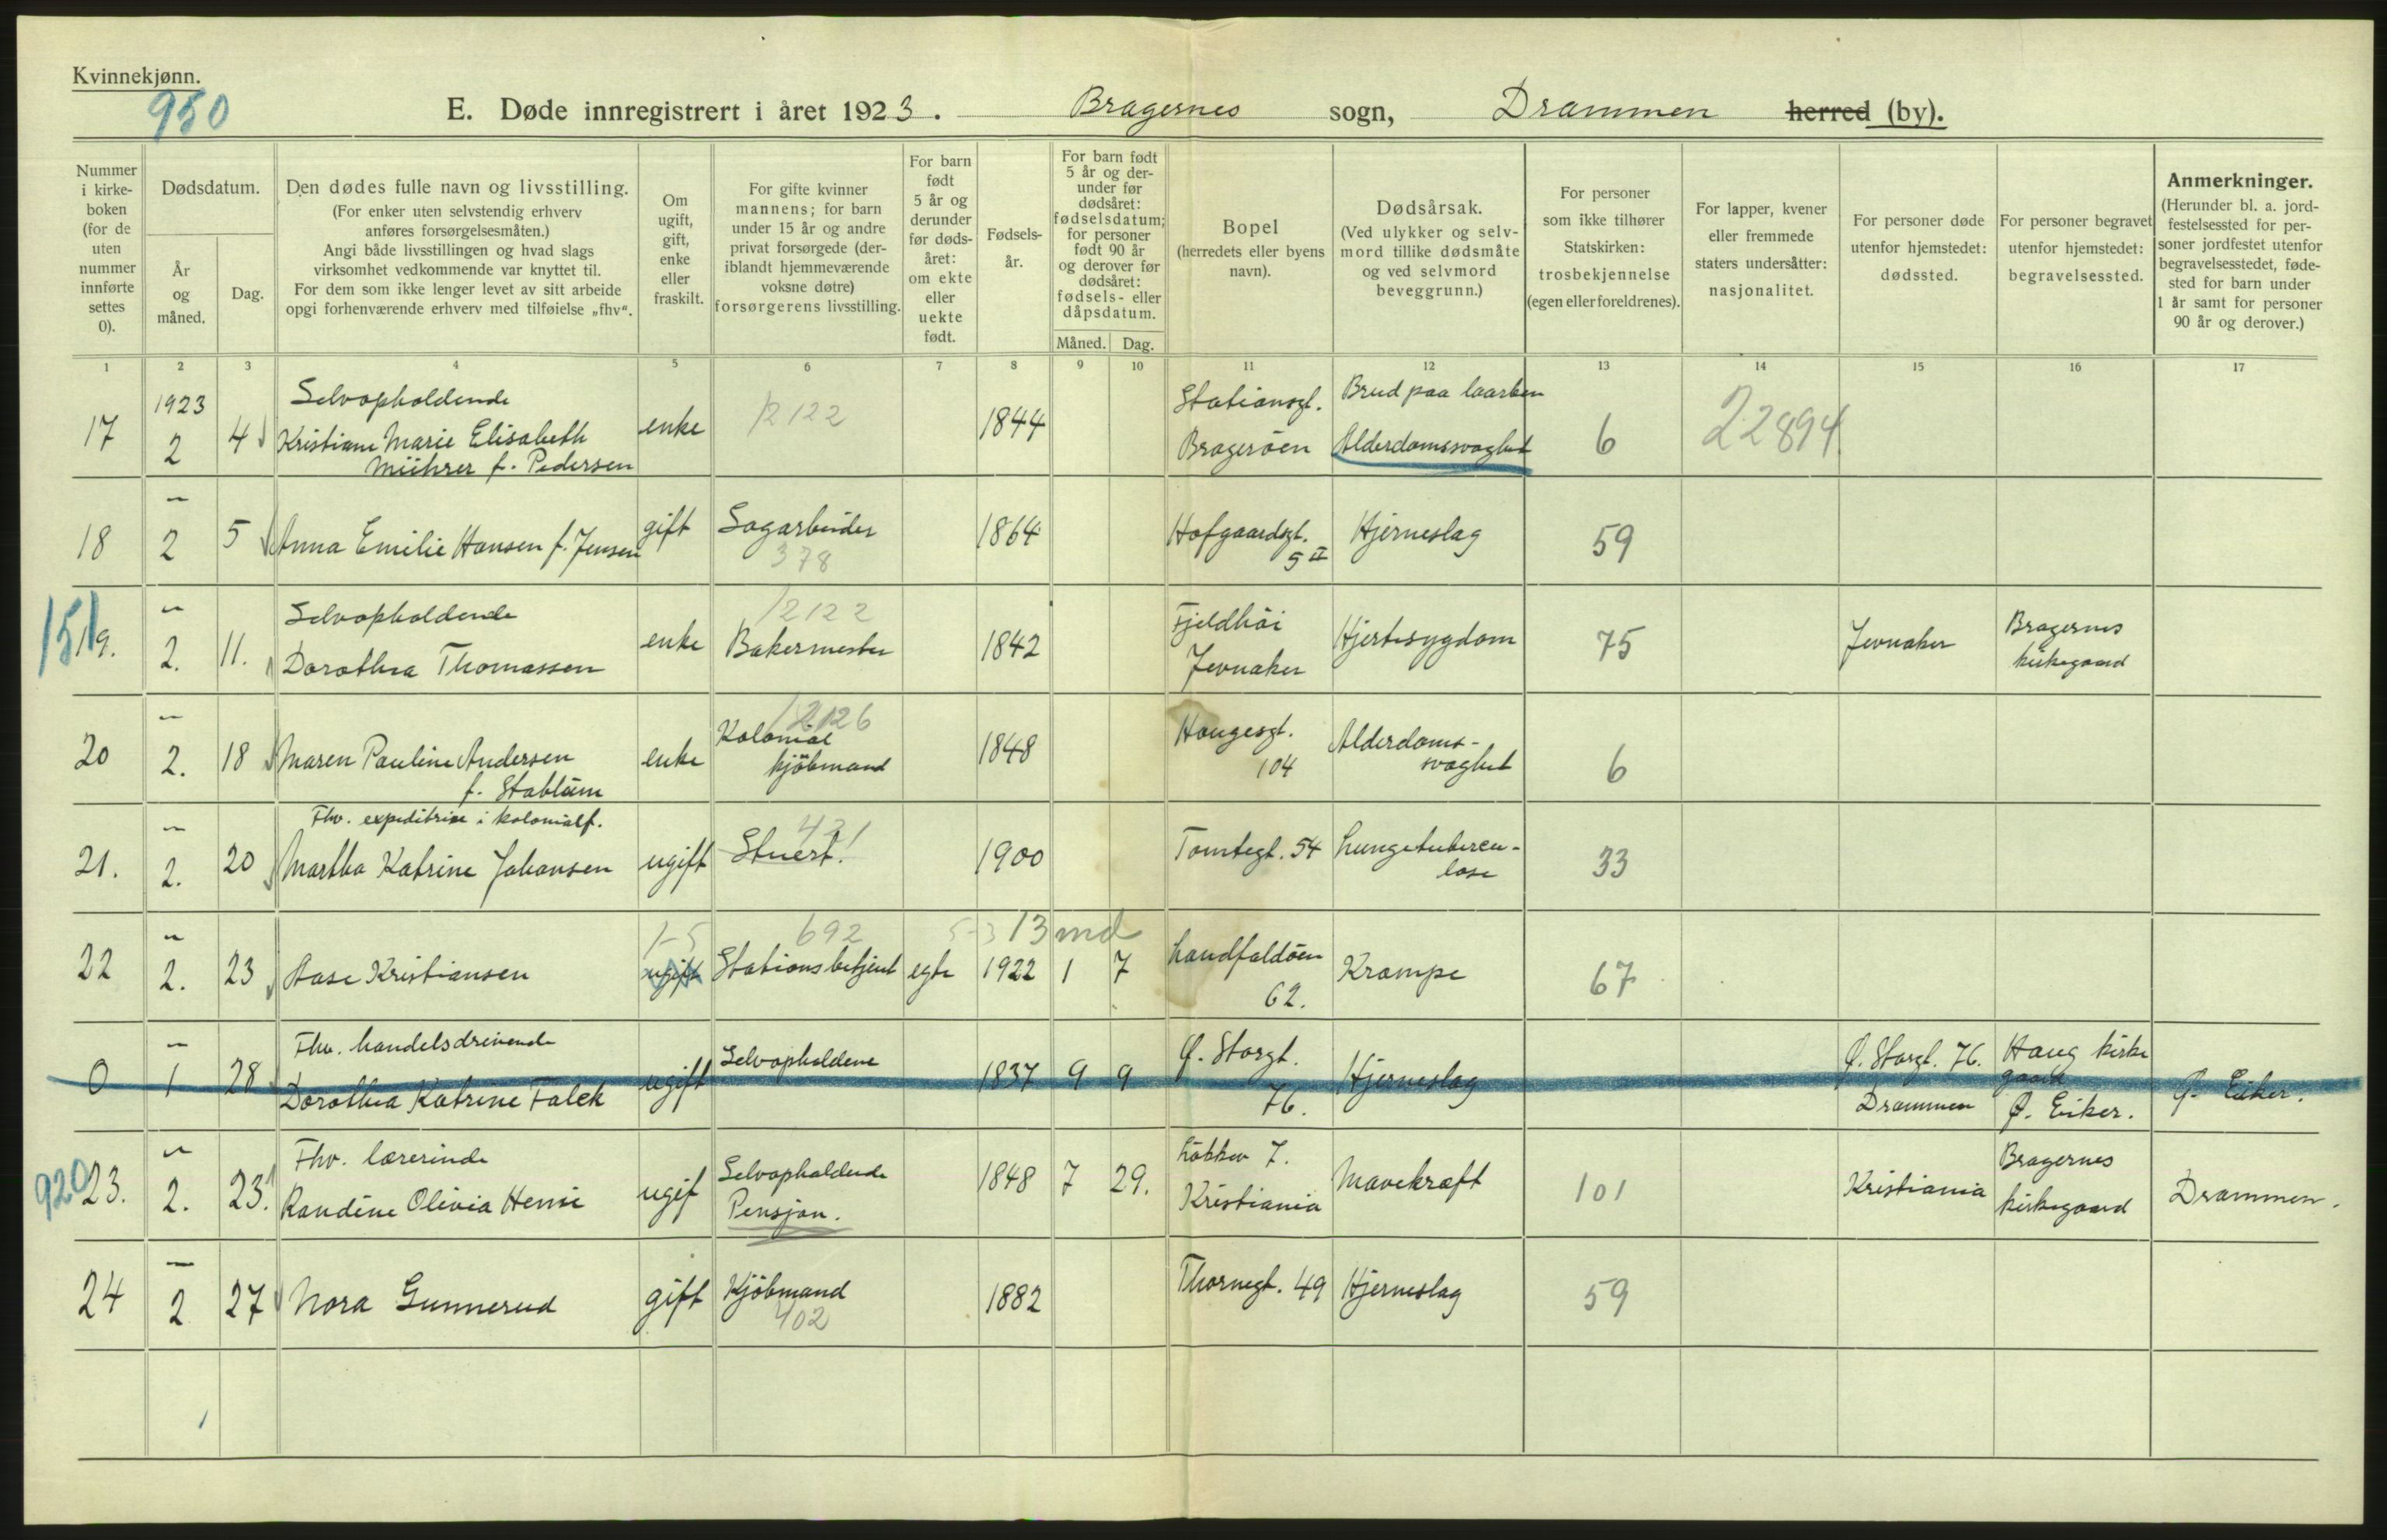 Kvinnekjønn.
950
E. Døde innregistrert i året 1923. Bragernes sogn, Drammen herred (by).
Nummer i kirke-boken (for de uten nummer innførte settes 0).
Dødsdatum.
År og måned.
Dag.
Den dødes fulle navn og livsstilling.
(For enker uten selvstendig erhverv
anføres forsørgelsesmåten.)
Angi både livsstillingen og hvad slags
virksomhet vedkommende var knyttet til.
For dem som ikke lenger levet av sitt arbeide
opgi forhenværende erhverv med tilføielse „fhv“.
Om ugift, gift, enke eller fraskilt.
For gifte kvinner
mannens; for barn
under 15 år og andre
privat forsørgede (der-
iblandt hjemmeværende
voksne døtre)
forsørgerens livsstilling.
For barn født 5 år og derunder før døds-året: om ekte eller uekte født.
Fødsels-år.
For barn født
5 år og der-
under før
dødsåret:
fødselsdatum;
for personer
født 90 år
og derover før
dødsåret:
fødsels- eller
dåpsdatum.
Måned. Dag.
Bopel
(herredets eller byens
navn).
Dødsårsak.
(Ved ulykker og selv-
mord tillike dødsmåte
og ved selvmord
beveggrunn.)
For personer
som ikke tilhører
Statskirken:
trosbekjennelse
(egen eller foreldrenes).
For lapper, kvener
eller fremmede
staters undersåtter:
nasjonalitet.
For personer døde
utenfor hjemstedet:
dødssted.
For personer begravet
utenfor hjemstedet:
begravelsessted.
Anmerkninger.
(Herunder bl. a. jord-
festelsessted for per-
soner jordfestet utenfor
begravelsesstedet, føde-
sted for barn under
1 år samt for personer
90 år og derover.)
1 2 3 4 5 6 7 8 9 10 11 12 13 14 15 16 17
17 1923 2 4 Selvopholdende Kristiane Marie Elisabeth Mührer f. Pedersen enke 12122 1844 Stationsgt. Bragerøen Brud paa laarben Alderdomssvaghet 6 22894
18 – 2 5 Anna Emilie Hansen f. Jensen gift Sagarbeider 378 1864 Hofgaardsgt. 5 II Hjerneslag 59
151 19. – 2. 11. Selvopholdende Dorothea Thomassen enke 12122 Bakermester 1842 Fjeldhöi Jevnaker Hjertesygdom 75 Jevnaker Bragernes kirkegaard
20 – 2. 18 Maren Pauline Andersen f. Stablum enke 12126 Kolonial kjöbmand 1848 Haugesgt. 104 Alderdoms-svaghet 6
21. – 2. 20 Fhv. expeditrise i kolonialf. Martha Katrine Johansen ugift Stuert. 431 1900 Tomtegt. 54 Lungetubercu-lose 33
22 – 2. 23 Aase Kristiansen 1-5 ugift 692 Stationsbetjent egte 5-3 13 md 1922 1 7 Landfaldöen 62. Krampe 67
0 – 1 28 Fhv. handelsdrivende Dorothea Katrine Falck ugift Selvopholdene 1837 9 9 Ø. Storgt. 76. Hjerneslag Ø. Storgt. 76. Drammen Haug kirke gaard Ø. Eiker. Ø. Eiker.
920 23. – 2. 23. Fhv. lærerinde Randine Olivia Henie ugif Selvopholdende Pensjon. 1848 7 29. Löbkev 7. Kristiania Mavekræft 101 Kristiania Bragernes kirkegaard Drammen.
24 – 2 27 Nora Gunnerud gift Kjöbmand 402 1882 Thornegt. 49 Hjerneslag 59